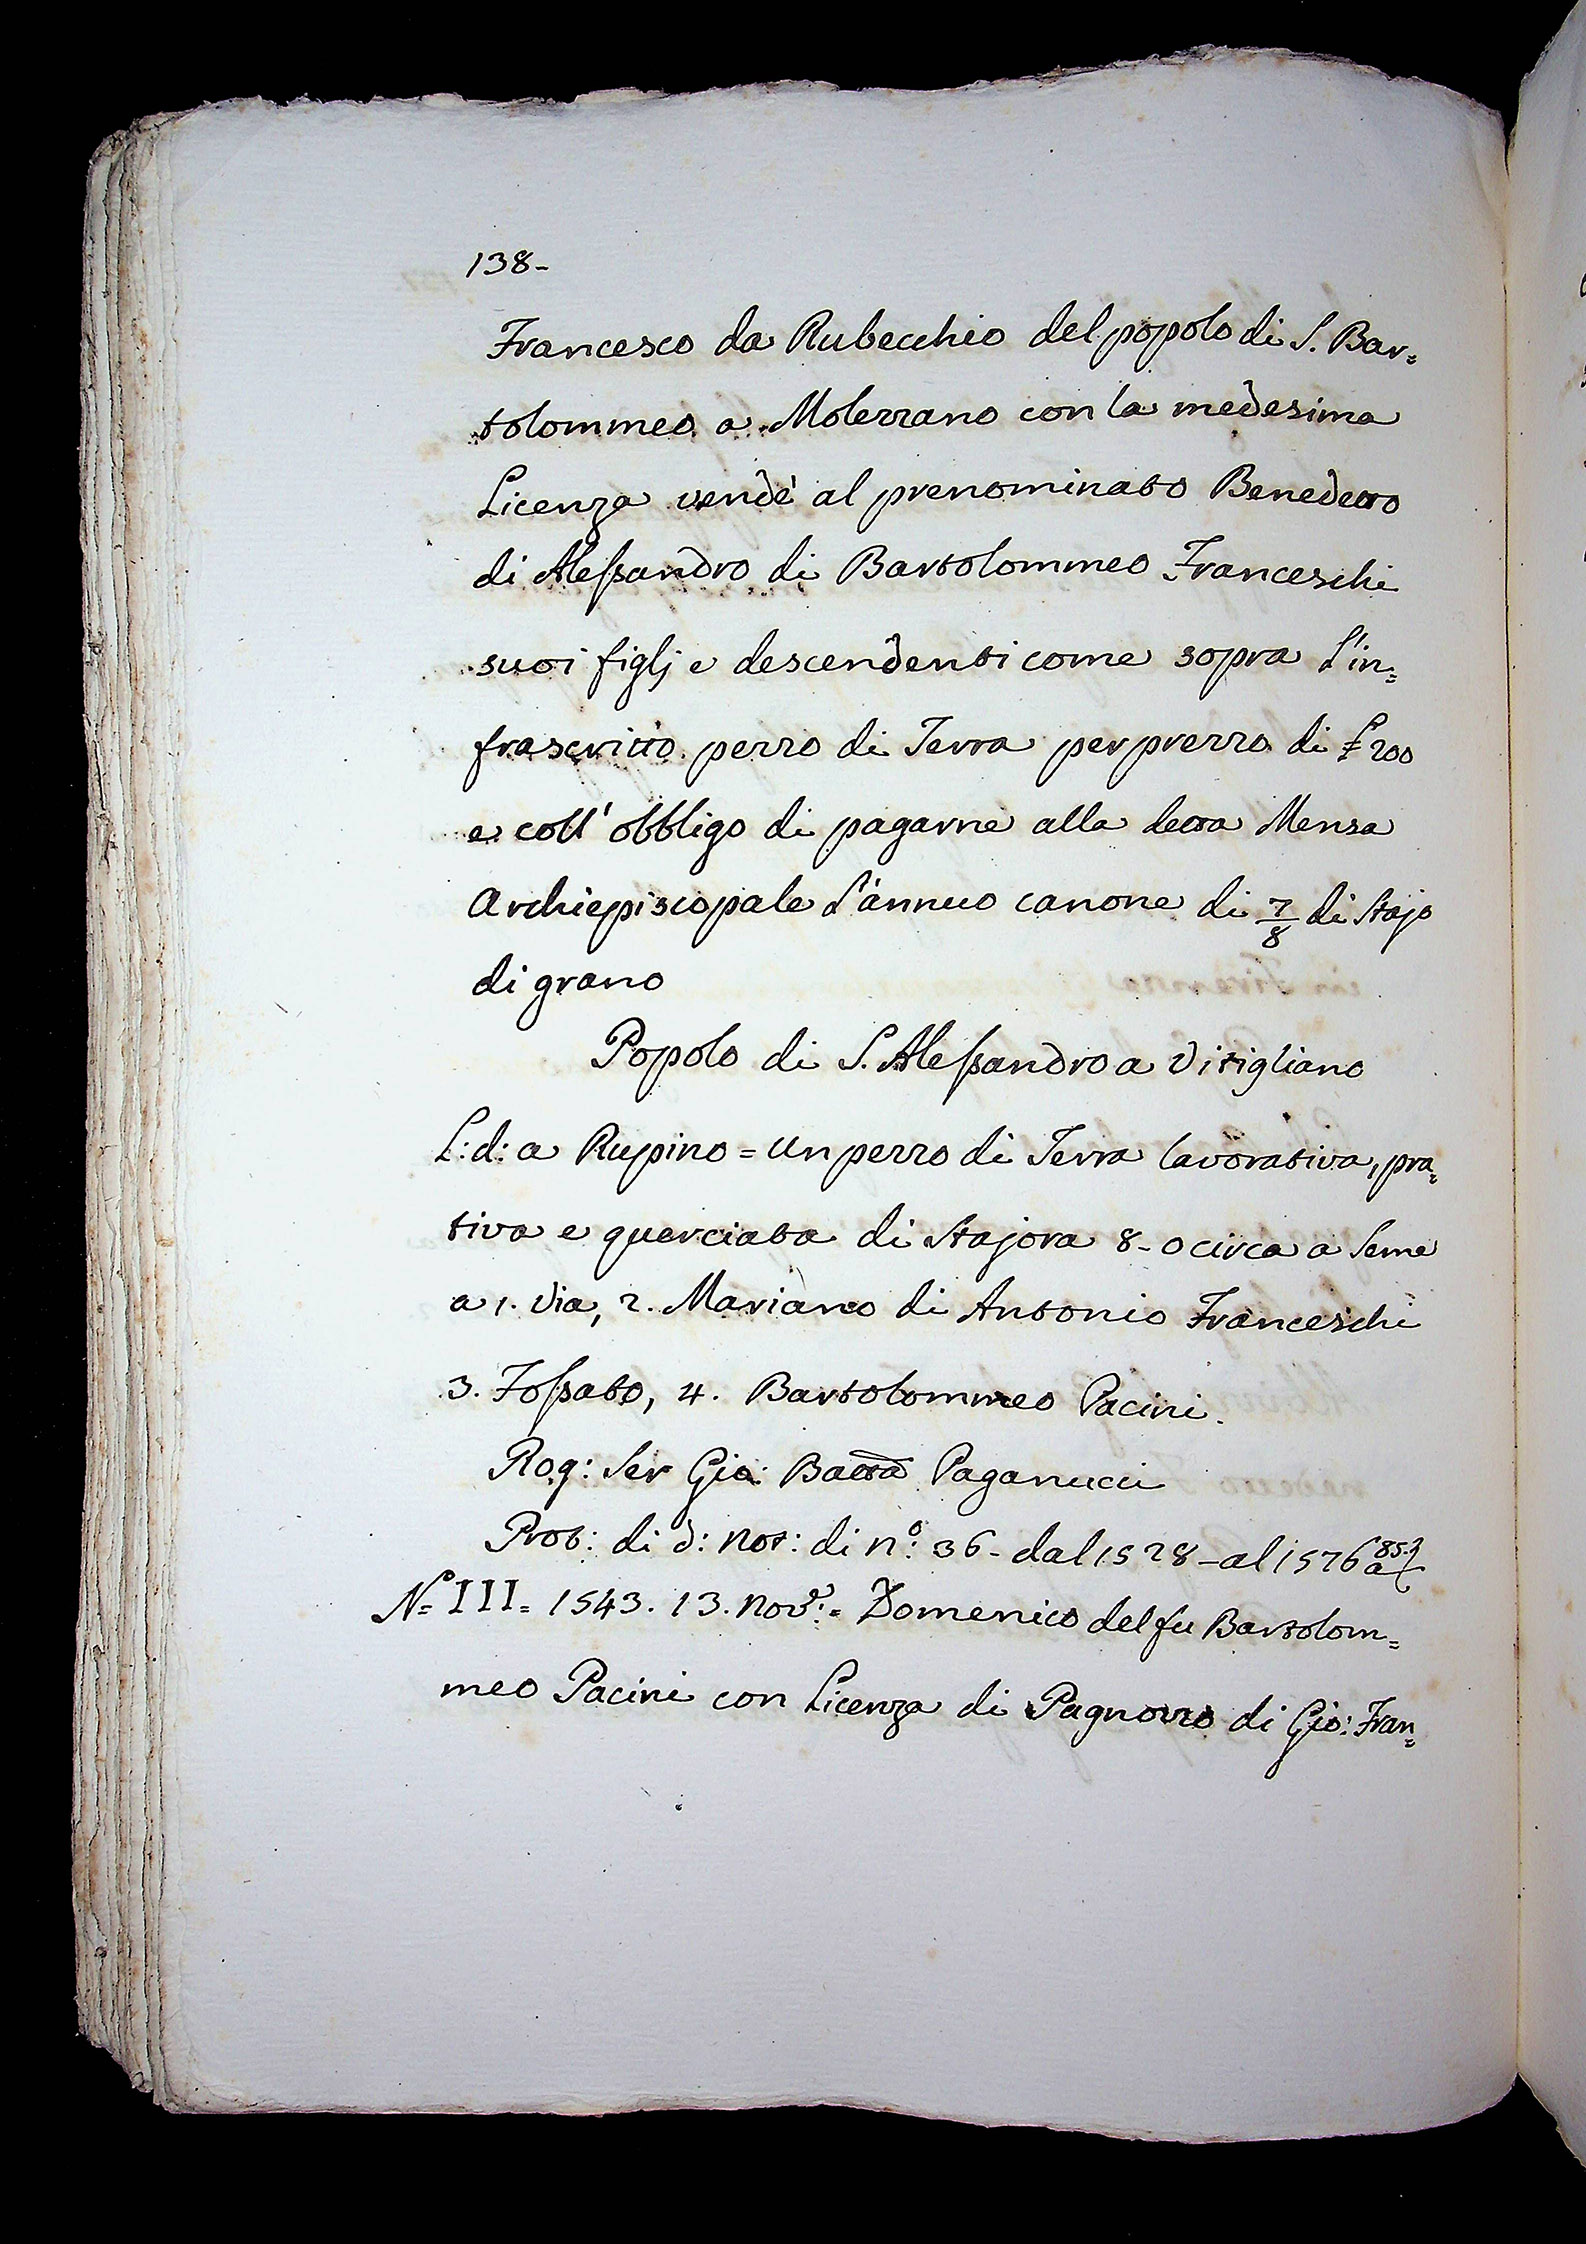 138-
Francesco da Rubecchio del popolo di S. Bar=
tolommeo a Molezzano con la medesima
Licenza vendè al prenominato Benedetto
di Alessandro di Bartolommeo Franceschi
suoi figlj e descendenti come sopra l'in=
frascritto pezzo di Terra per prezzo di £ 200
e coll'obbligo di pagarne alla detta Mensa
Archiepiscopale l'annuo canone di 7/8 di Stajo
di grano
Popolo di S. Alessandro a Vitigliano
L: d: a Rupino = Un pezzo di Terra lavorativa, pra=
tiva e querciata di Stajora 8- o circa a Seme
a 1. Via, 2. Mariano di Antonio Franceschi
3. Fossato, 4. Bartolommeo Pacini.
Rog: Ser Gio: Batta Paganucci
Prot: di d: Not: di n.º 36- dal 1528- al 1576 a 85.
Nº= III= 1543. 13. Nov.e= Domenico del fu Bartolom=
meo Pacini con Licenza di Pagnozzo di Gio: Fran=